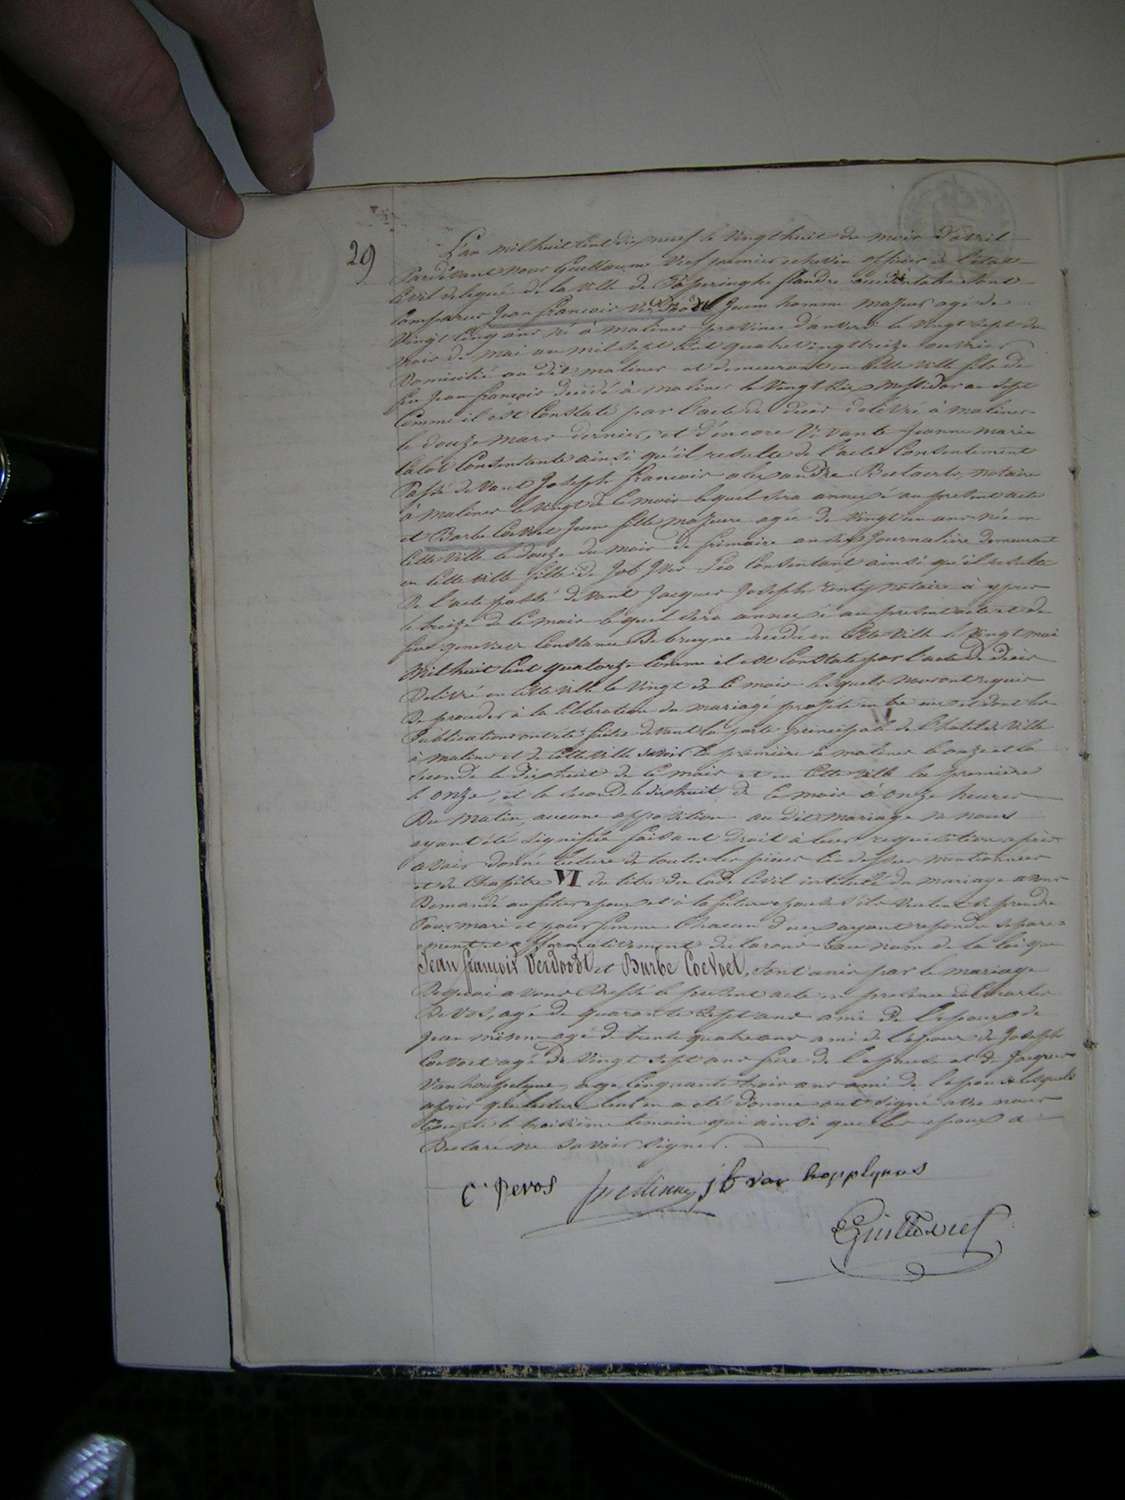 29
L'an mil huit Cent dix neuf le Vingt huit du mois d'avril
Pardevant nous Guillaume Vref premier echevin officier de l'état
Civil delegué de la Ville de Poperinghe flandre occidentale sont
Comparus Jean francois Verdoodt Jeun homme majeur agé de
Vingt Cinq ans né à malines province d'anvers le vingt sept du
mois de mai an mil sept Cent quatre vingt treize ouvrier
Domicilié au dit malines et demeurant en Cette Ville fils de
feu Jean françois decedé à malines le Vingt Messidor an sept
Comme il est Constaté par l'acte de décès delivré à malines
le douze mars dernier, et d'encore Vivante Jeanne marie
Consentante ainsi qu'il resulte de l'acte Consentement
Passé devant Joseph francois alexandre notaire
à malines le vingt de Ce mois lequel sera annexé au present acte
et Barbe Coevoet Jeune fille majeure agée de Vingt un ans née en
Cette Ville le douze du mois de frimaire an six Journaliere demeurant
en Cette ville fille de Job Consentant ainsi qu'il resulte
de l'acte passé devant Jacques Joseph notaire à ypres
le treize de Ce mois lequel sera annexé au present acte et de
feue Constance De bruyne decedée en Cette Ville le Vingt mai
Mil huit Cent quatorze Comme il est Constaté par l'acte de décès
Delivré en Cette ville le Vingt de Ce mois lesquels nous ont requis
de proceder à la Celebration du mariage projeté entre eux et dont les
Publications ont été faites devant la porte principale de l'hotel de Ville
à malines et de Cette Ville savoir la première à malines le onze et la
seconde le dix huit de Ce mois et en Cette Ville la première
le onze, et la seconde le dix huit de Ce mois à onze heures
Du Matin, aucune opposition au dit mariage ne nous
ayant été signifiée faisant droit à leur requisition après
avoir donné lecture de toutes les pièces Ci dessus mentionnées
et du Chapitre VI du titre du Code Civil intitulé du mariage avons
Demandé au futur epoux et à la future epouse s'ils veulent se prendre
Pour mari et pour femme Chacun d'eux ayant repondu separe-
ment et affirmativement declarons au nom de la loi que
Jean françois Verdoodt et Barbe Coevoet, sont unis par le mariage
De quoi avons Dressé le présent acte en presence de Charles
De Vos, agé de quarante sept ans ami de l'epoux de
Jean agé de trente quatre ans ami de l'epoux de Joseph
Coevoet agé de Vingt sept ans frère de l'epouse et de Jacques
Van houpplyne agé Cinquante trois ans ami de l'epouse lesquels
après que lecture leur en a été donnée ont signé avec nous
Excepté le troisième temoin qui ainsi que les epoux a
Declaré ne savoir signer.
C: Devos j b van hopplynus